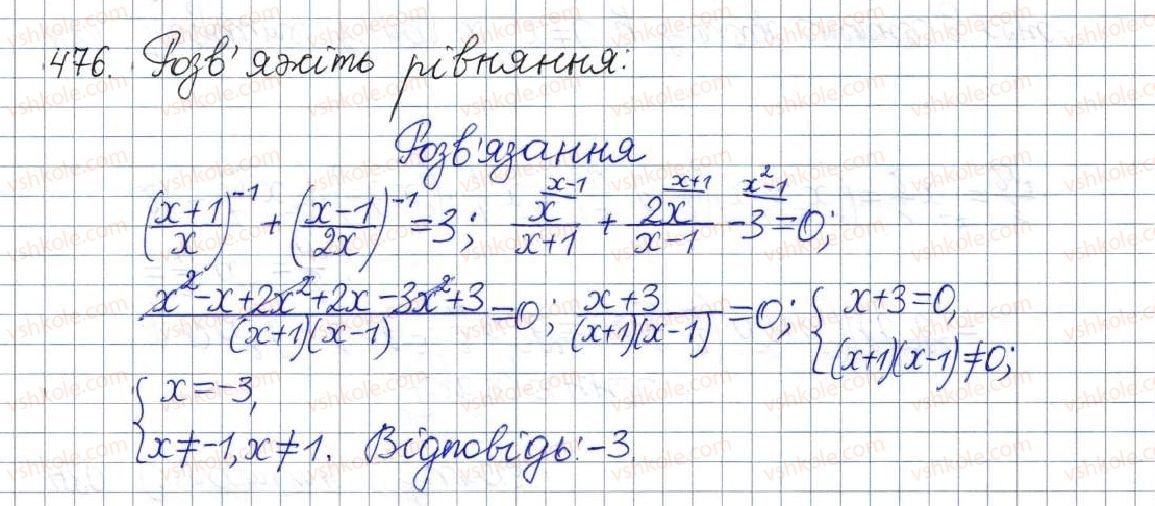 476. Розв'яжіть рівняння:
Розв'язання
((x+1)/x)^-1 + ((x-1)/2x)^-1 = 3; x/(x+1)^(x-1 + 2x/(x-1)^(x+1 - 3^(x²-1 = 0;
(x²-x+2x²+2x-3x²+3)/((x+1)(x-1)) = 0; (x+3)/((x+1)(x-1)) = 0; { x+3=0,
(x+1)(x-1)≠0;
{ x=-3,
x≠-1, x≠1. Відповідь: -3.
vshkole.com